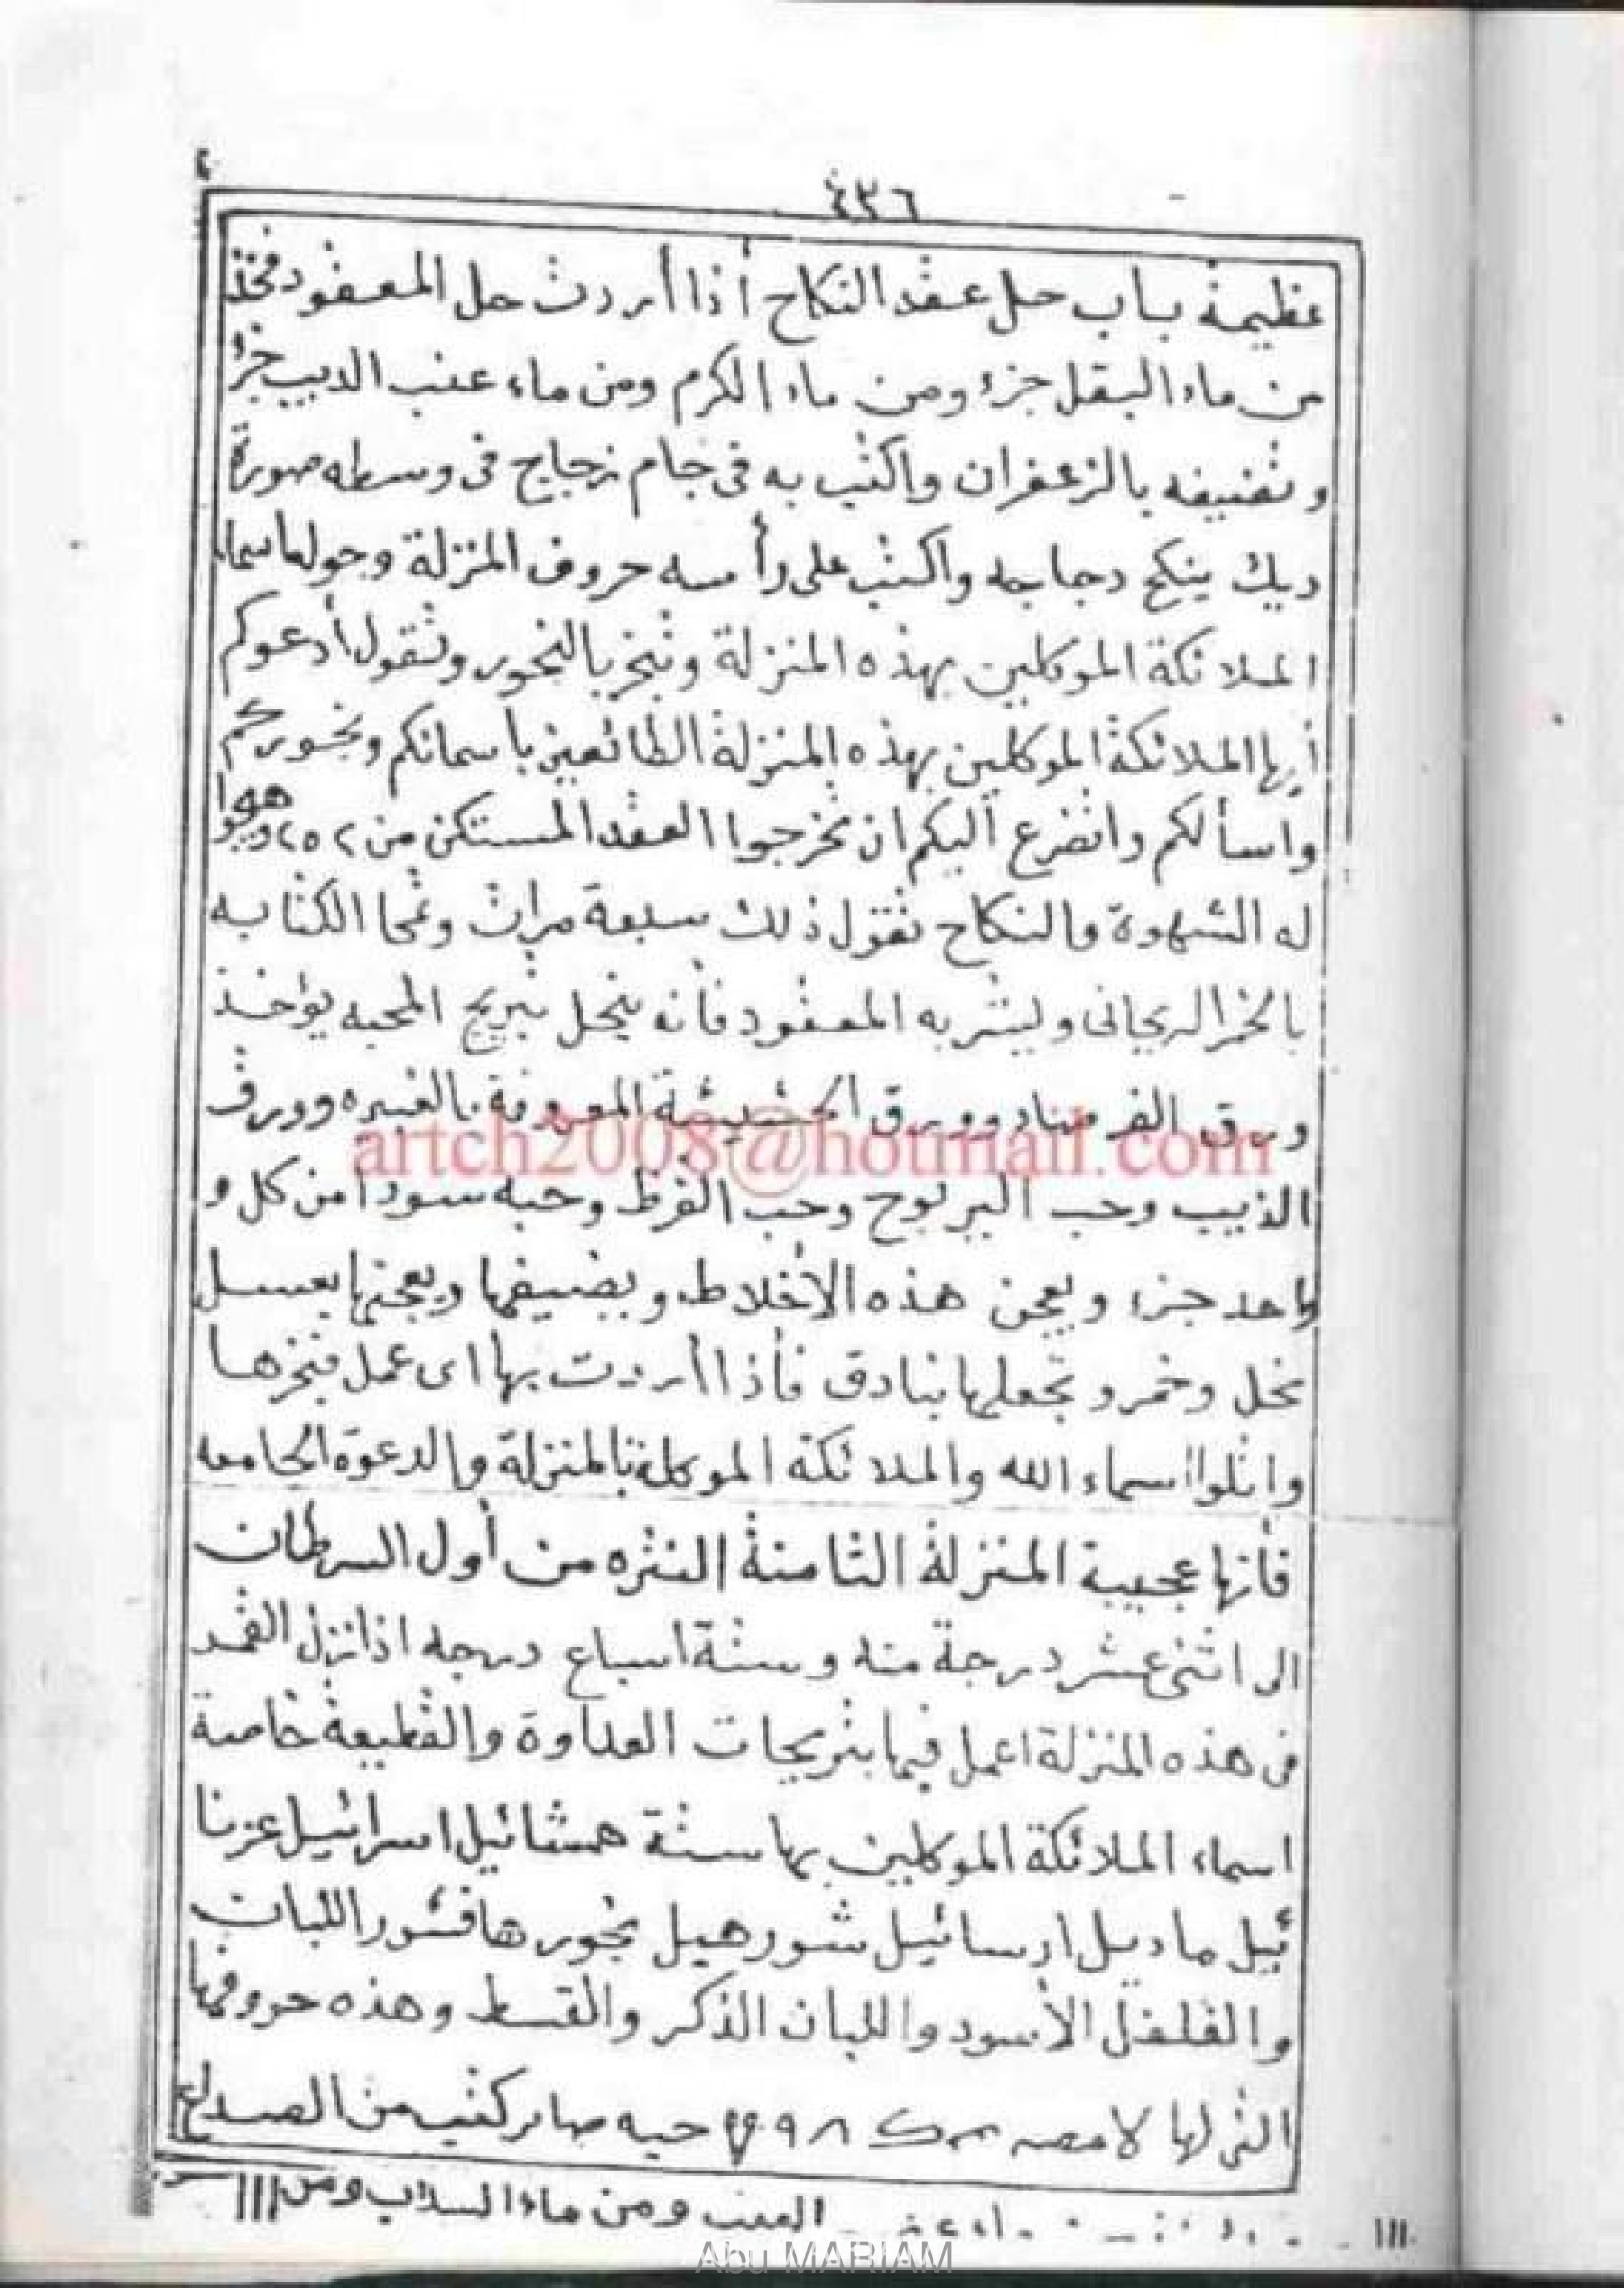 ٤٣٦
عظيمة باب حل عقد النكاح أذا أردت حل المعقود فخذ
من ماء البقل جزء ومن ماء الكرم ومن ماء عنب الديب جزء
وتضيفه بالزعفران واكتب به فى جام زجاج فى وسطه صورة
ديك ينكح دجاجه واكتب على رأسه حروف المنزلة وحولها اسماء
الملائكة الموكلين بهذه المنزلة وتبخر بالبخور وتقول أدعوكم
أيها الملائكة الموكلين بهذه المنزلة الطائعين بأسمائكم وبخوركم
واسألكم واتضرع أليكم ان تخرجوا العقد المستكن من ٢٥٢
له الشهوة والنكاح تقول ذلك سبعة مرات وتمحا الكتابه
بالخمر الريحانى وليشربه المعقود فأنه ينحل تبريج المحبه يؤاخذ
ورق وورق الحشيشة المعروفة بالغبيره وورق
الذبيب وحب وحب القرظ وحبه سودا من كل و
واحد جزء ويعجن هذه الأخلاط ويضيفها ويعجنها بعسل
نحل وخمر وتجعلها بنادق فأذا أردت بها اى عمل فبخرها
واتلوا اسماء الله والملائكة الموكلة بالمنزلة والدعوة الجامعه
فأنها عجيبة المنزلة الثامنة النثره من أول السرطان
الى اثنى عشر درجة منه وستة اسباع درجه اذا نزل القمر
فى هذه المنزلة اعمل فيها بتريجات العداوة والقطيعة خاصة
اسماء الملائكة الموكلين بها ستة همشائيل اسرائيل عزنا
ئيل ماديل ارسائيل شورهيل بخورها قشور اللبان
والفلفل الأسود واللبان الذكر والقسط وهذه حروفها
التى لها لا ٩٨ حيه صابر كتب من الصداع
العنب ومن ماء السداب ومن
artch2008@hotmail.com
Abu MARIAM